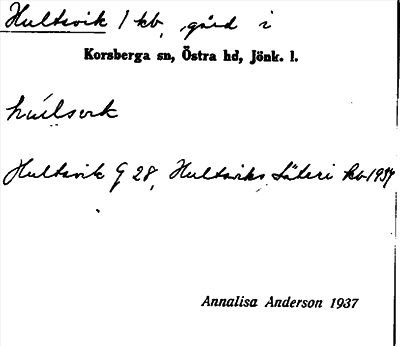 Hultsvik 1 kb, gård i
Korsberga sn, Östra hd, Jönk. l.
Hultsvik G 28, Hultsviks Säteri kb 1937
Annalisa Anderson 1937